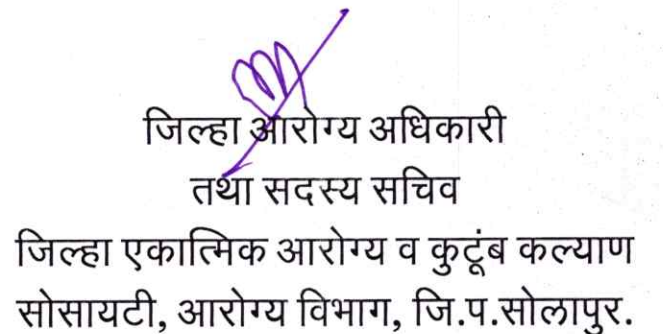 जिल्हा आरोग्य अधिकारी
तथा सदस्य सचिव
जिल्हा एकात्मिक आरोग्य व कुटूंब कल्याण
सोसायटी, आरोग्य विभाग, जि.प.सोलापुर.